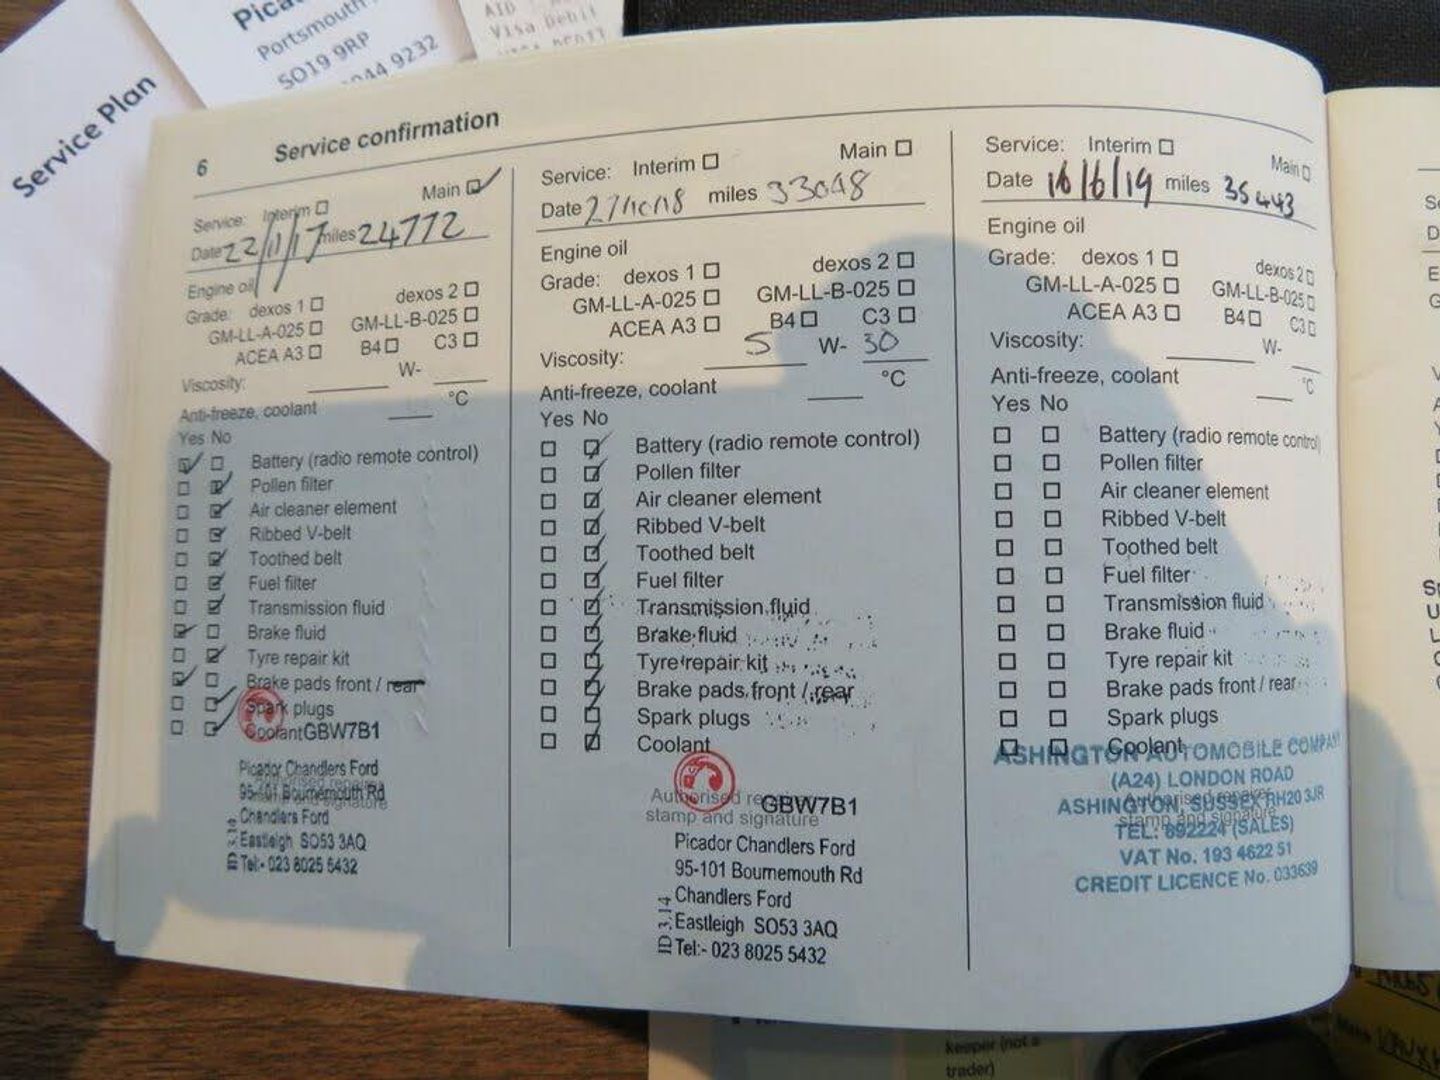 Service Plan
Portsmouth
SO19 9RP
044 9232
AID
Visa Debit
6 Service confirmation
Service: Interim Main
Date 22/11/17 miles 24772
Engine oil
Grade: dexos 1 dexos 2
GM-LL-A-025 GM-LL-B-025
ACEA A3 B4 C3
Viscosity: W-
Anti-freeze, coolant °C
Yes No
Battery (radio remote control)
Pollen filter
Air cleaner element
Ribbed V-belt
Toothed belt
Fuel filter
Transmission fluid
Brake fluid
Tyre repair kit
Brake pads front / rear
Spark plugs
Coolant GBW7B1
Picador Chandlers Ford
95-101 Bournemouth Rd
Chandlers Ford
Eastleigh SO53 3AQ
Tel:- 023 8025 5432
ID 3.14
Service: Interim Main
Date miles 33048
Engine oil
Grade: dexos 1 dexos 2
GM-LL-A-025 GM-LL-B-025
ACEA A3 B4 C3
Viscosity: 5 W- 30
Anti-freeze, coolant °C
Yes No
Battery (radio remote control)
Pollen filter
Air cleaner element
Ribbed V-belt
Toothed belt
Fuel filter
Transmission fluid
Brake fluid
Tyre repair kit
Brake pads front / rear
Spark plugs
Coolant
Authorised repairer GBW7B1
stamp and signature
Picador Chandlers Ford
95-101 Bournemouth Rd
Chandlers Ford
Eastleigh SO53 3AQ
Tel:- 023 8025 5432
ID 3.14
Service: Interim Main
Date 16/6/19 miles 35443
Engine oil
Grade: dexos 1 dexos 2
GM-LL-A-025 GM-LL-B-025
ACEA A3 B4 C3
Viscosity: W-
Anti-freeze, coolant °C
Yes No
Battery (radio remote control)
Pollen filter
Air cleaner element
Ribbed V-belt
Toothed belt
Fuel filter
Transmission fluid
Brake fluid
Tyre repair kit
Brake pads front / rear
Spark plugs
Coolant
ASHINGTON AUTOMOBILE COMPANY
(A24) LONDON ROAD
ASHINGTON, SUSSEX RH20 3JR
TEL: 892224 (SALES)
VAT No. 193 4622 51
CREDIT LICENCE No. 033639
Authorised repairer
stamp and signature
keeper (not a
trader)